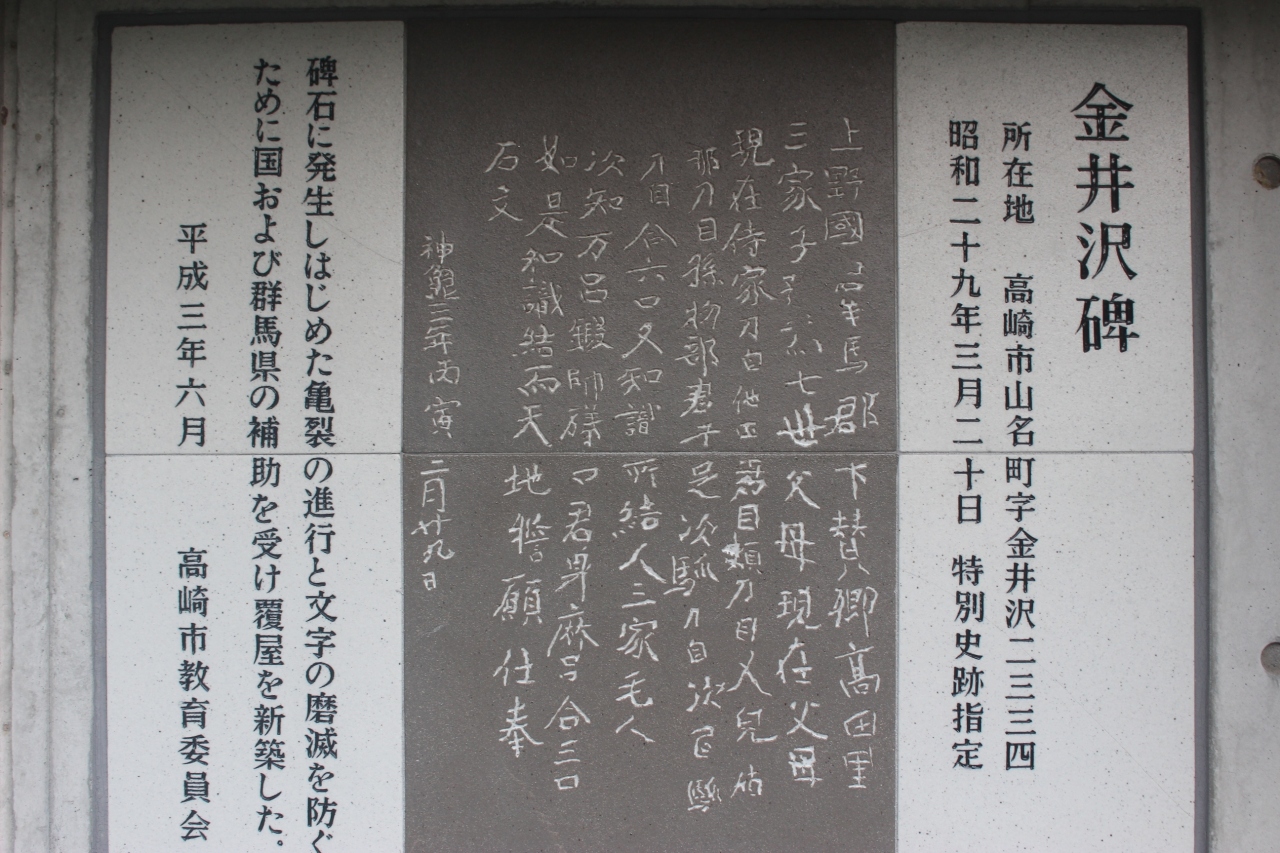 金井沢碑
所在地 高崎市山名町字金井沢二三三四
昭和二十九年三月二十日 特別史跡指定
上野國羣馬郡下賛郷高田里
三家子孫為七世父母現在父母
現在侍家刀自他田君目頬刀自又兒加
那刀自孫物部君午足次馴刀自次乙馴
刀自合六口又知識所結人三家毛人
次知万呂鍛師礒マ君身麻呂合三口
如是知識結而天地誓願仕奉
石文
神龜三年丙寅二月廿九日
碑石に発生しはじめた亀裂の進行と文字の磨滅を防ぐ
ために国および群馬県の補助を受け覆屋を新築した。
平成三年六月 高崎市教育委員会